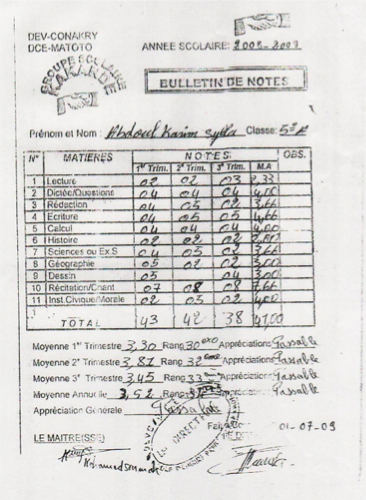 DEV-CONAKRY
DCE-MATOTO
ANNEE SCOLAIRE:
GROUPE SCOLAIRE
KAKANDE
BULLETIN DE NOTES
Prénom et Nom : Abdoul Karim Sylla Classe: 5è A
N° MATIERES NOTES OBS.
1er Trim. 2è Trim. 3è Trim. M.A
1 Lecture 02 02 03 2,33
2 Dictée/Questions 04 04 04 4,00
3 Rédaction 04 05 02 3,66
4 Ecriture 04 05 05 4,66
5 Calcul 04 04 04 4,00
6 Histoire 02 02 02 2,00
7 Sciences ou Ex.S 04 05 02 3,66
8 Géographie 05 02 02 3,00
9 Dessin 05 04 3,00
10 Récitation/Chant 07 08 08 7,66
11 Inst.Civique/Morale 02 05 02 4,00
TOTAL 43 42 38 41,00
Moyenne 1er Trimestre 3,30 Rang 30 exo Appréciations Passable
Moyenne 2è Trimestre 3,81 Rang 32 Appréciations Passable
Moyenne 3è Trimestre 3,45 Rang 33 Appréciations Passable
Moyenne Annuelle 3,52 Rang Appréciations Passable
Appréciation Générale Passable
LE MAITRE(SSE)
01-07-03
LE DIRECTEUR
Mohamed